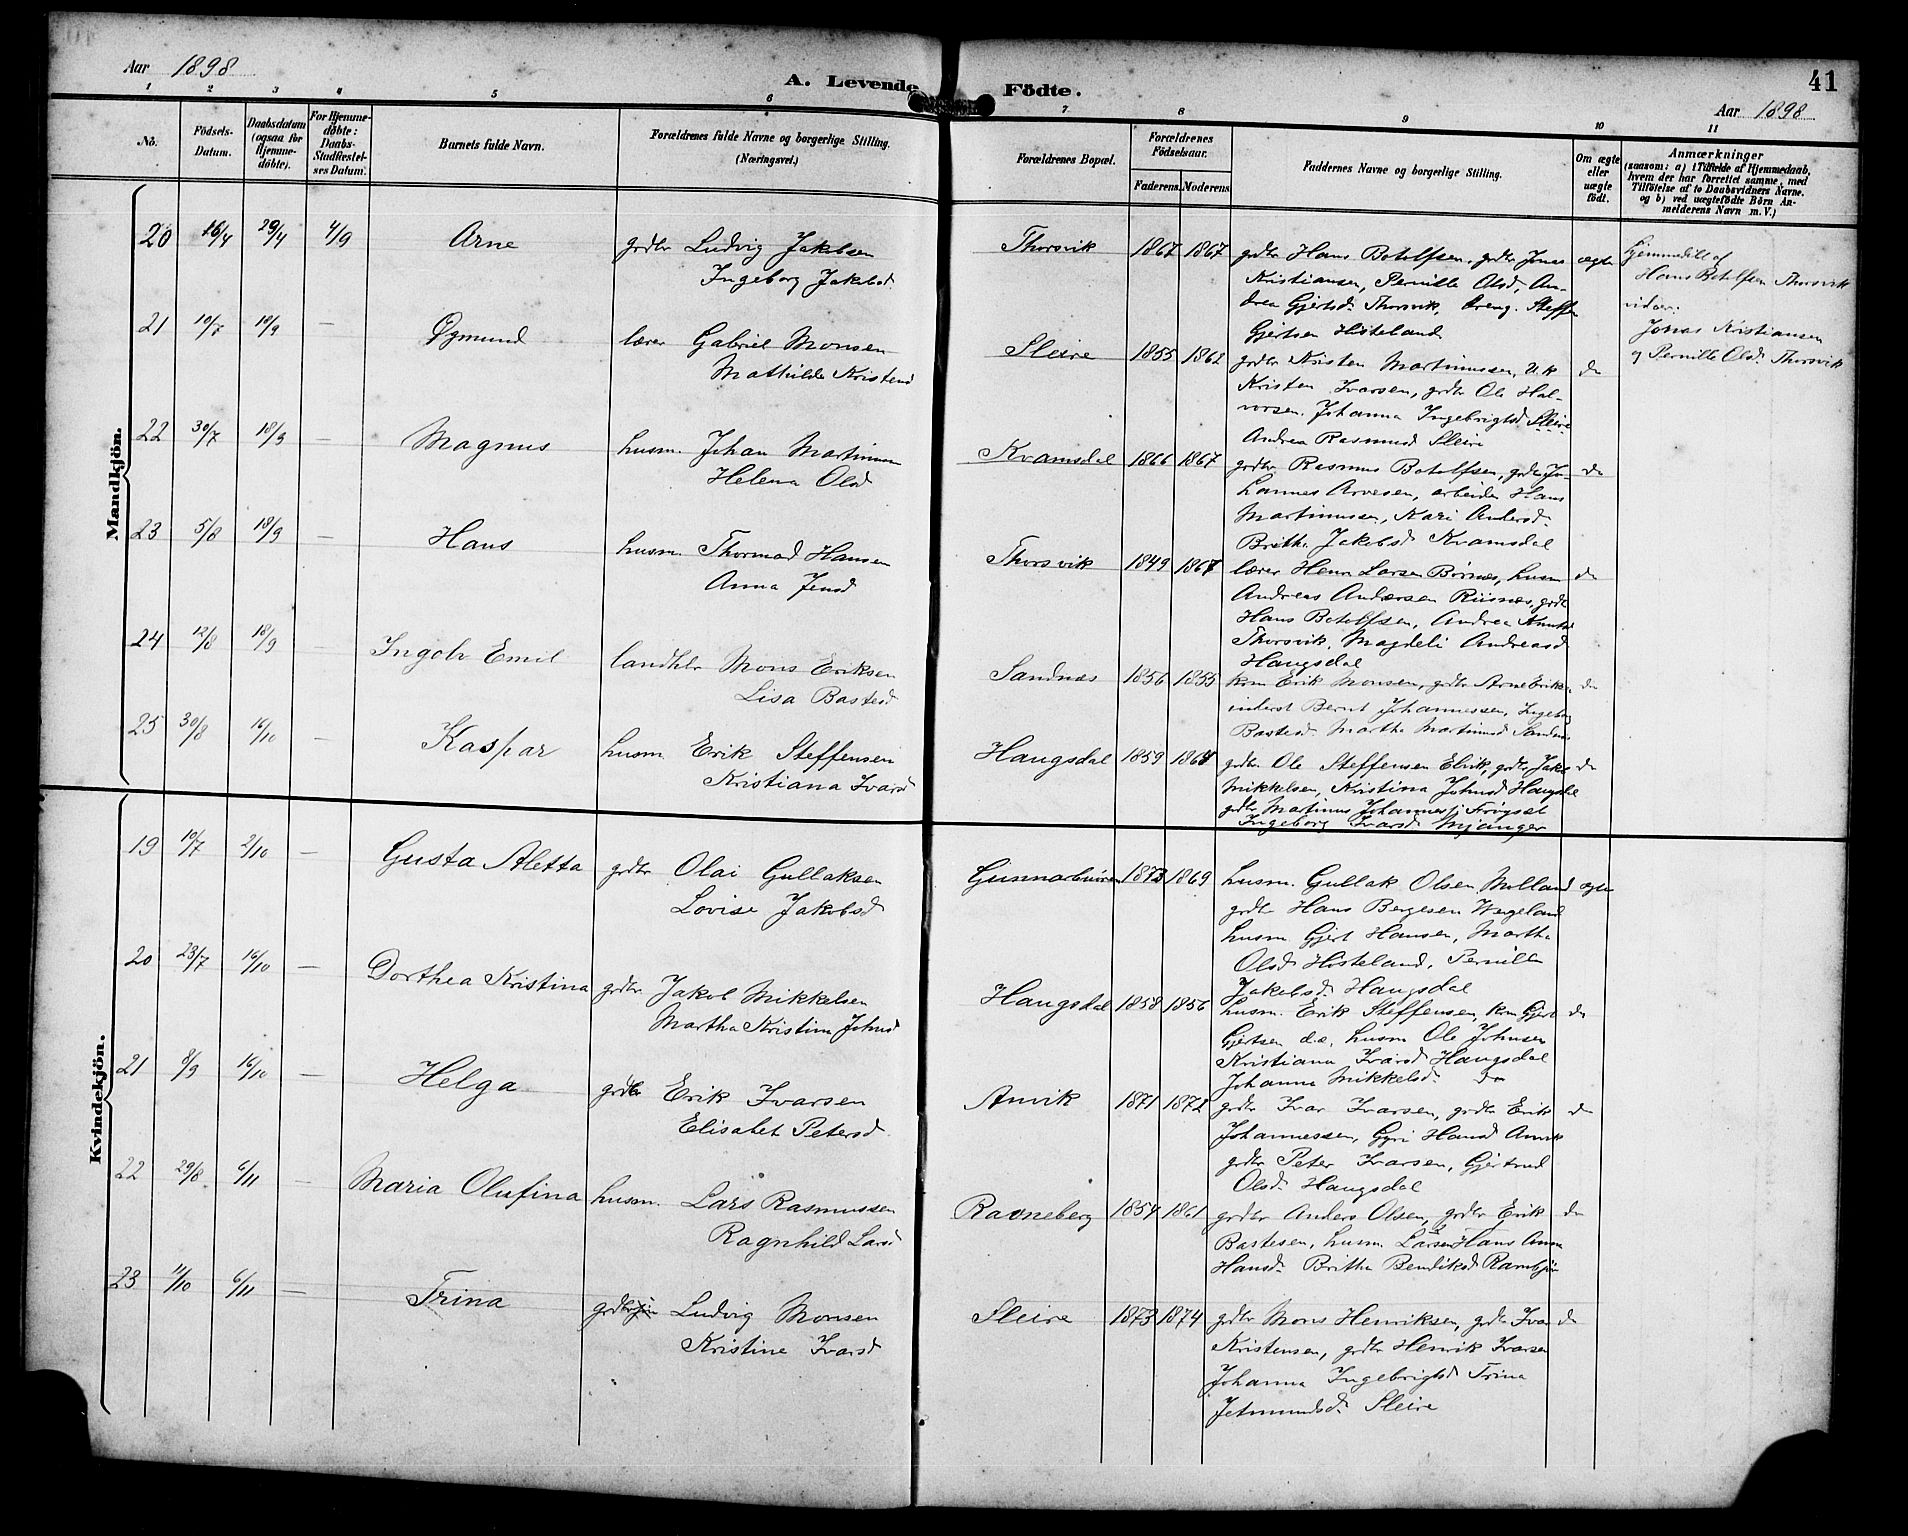 Aar 1898
A. Levende Födte.
41
Aar 1898
1 2 3 4 5 6 7 8 9 10 11
No.
Födsels-
Datum.
Daabsdatum
(ogsaa for
Hjemme-
döbte).
For Hjemme-
döbte:
Daabs-
Stadfæstel-
ses Datum.
Barnets fulde Navn.
Forældrenes fulde Navne og borgerlige Stilling.
(Næringsvei.)
Forældrenes Bopæl.
Forældrenes
Födselsaar.
Faderens. Moderens
Faddernes Navne og borgerlige Stilling.
Om ægte
eller
uægte
födt.
Anmærkninger
(saasom: a) i Tilfælde af Hjemmedaab,
hvem der har forrettet samme, med
Tilföielse af to Daabsvidners Navne.
og b) ved uægtefödte Börn An-
melderens Navn m. V.)
Mandkjön.
20 16/4 29/4 4/9 Arne grdbr Ludvig Jakobsen
Ingeborg Jakobsd.
Thorsvik 1867 1867 grdbr Hans Botolfsen, grdbr Jonas ægte
Kristiansen, Pernille Olsd, An-
drea Gjertsd. Thorsvik, dreng. Steffen
Gjertsen Hosteland
Hjemmedøbt af
Hans Botolfsen Thorsvik
vidner:
Jonas Kristiansen
og Pernille Olsd. Thorsvik
21 10/7 10/9 — Øgmund lærer Gabriel Monsen
Mathilde Kristensd
Sleire 1855 1862 grdbr Kristen Martinussen, u.k do
Kristen Ivarsen, grdbr Ole Hal-
vorsen. Johanna Ingebrigtsd Sleire
Andrea Rasmusd Sleire
22 30/7 18/9 — Magnus husm. Johan Martinusn
Helena Olsd
Kvamsdal 1866 1867 grdbr Rasmus Botolfsen, grdbr Jo- do
hannes Arvesen, arbeider Hans
Martinussen, Kari Andersd.
Brithe Jakobsd Kvamsdal
23 5/8 18/9 — Hans husm. Thormod Hansen
Anna Jensd
Thorsvik 1849 1867 lærer Henr Larsen Børnes, husm do
Andreas Andersen Riisnes, grdbr
Hans Botolfsen, Andrea Knutsd
Thorsvik, Magdeli Andreasd
Haugsdal
24 12/8 18/9 Ingolv Emil landhlr Mons Eriksen
Lisa Bastesd
Sandnes 1856 1855 krm Erik Monsen, grdbr Arne Eriks. do
inderst Bernt Johannessen, Ingeborg
Bastesd. Martha Martinusd Sandnes
25 30/8 16/10 — Kaspar husm Erik Steffensen
Kristiana Ivarsd
Haugsdal 1859 1865 grdbr. Ole Steffensen Elvik, grdbr Jakob do
Mikkelsen, Kristina Johnsd Haugsdal
grdbr Martinus Johannesj Frøyset
Ingeborg Ivarsd. Mjanger
Kvindekjön.
19 10/7 2/10 — Gusta Aletta grdbr Olai Gullaksen
Lovise Jakobsd
1873 1869 husm. Gullak Olsen Molland ægte
grdbr Hans Bergesen Wergeland
husm Gjert Hansen, Martha
Olsd Hosteland, Pernille
Jakobsd. Haugsdal
20 23/7 16/10 — Dorthea Kristina grdbr Jakob Mikkelsen
Martha Kristina Johnsd
Haugsdal 1858 1856 husm. Erik Steffensen, krm Gjert do
Gjertsen d.æ, husm Ole Johnsen
Kristiana Ivarsd Haugsdal
Johanna Mikkelsd. do
21 8/9 16/10 — Helga grdbr Erik Ivarsen
Elisabet Petersd
Anvik 1871 1872 grdbr Ivar Ivarsen, grdbr Erik do
Johannessen, Gyri Hansd Anvik
grdbr Peter Ivarsen, Gjertrud
Olsd. Haugsdal
22 29/8 6/11 — Maria Olufina husm. Lars Rasmussen
Ragnhild Larsd
Ravneberg 1854 1861 grdbr Anders Olsen, grdbr Erik do
Bastesen, husm. Larsen Hans Anna
Hansd. Britha Bendiksd
23 11/10 6/11 — Trina Ludvig Monsen
Kristine Ivarsd
Sleire 1873 1874 grdbr Mons Henriksen, grdbr Ivar do
Kristensen, grdbr Henrik Ivarsen
Johanna Ingebrigtsd Trina
Jetmundsd. Sleire